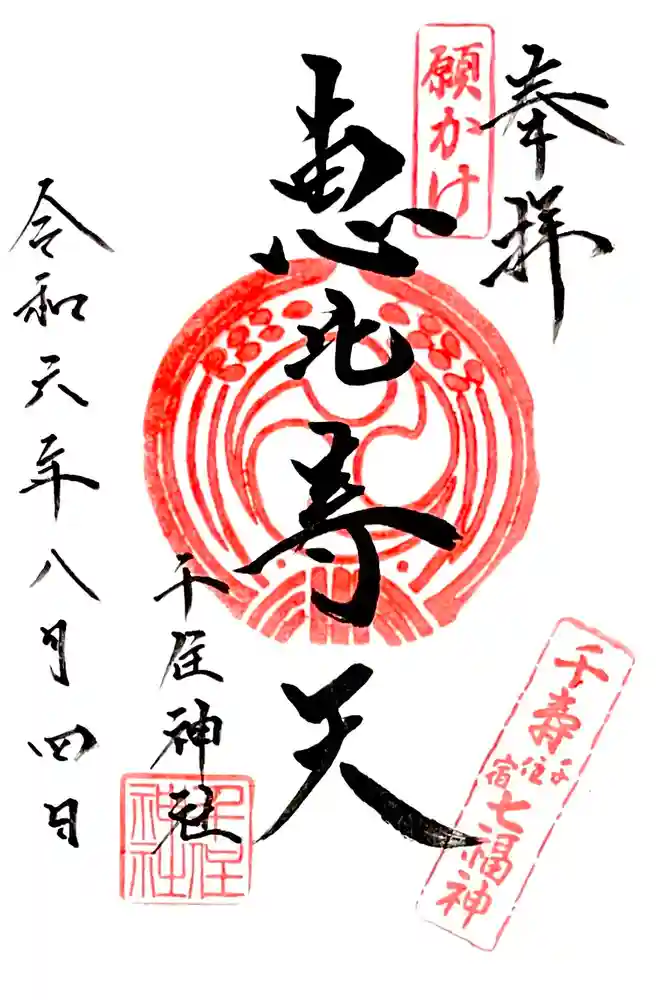 奉拝
願かけ
恵比寿天
千住神社
千住神社
令和元年八月四日
千寿
千住宿
七福神